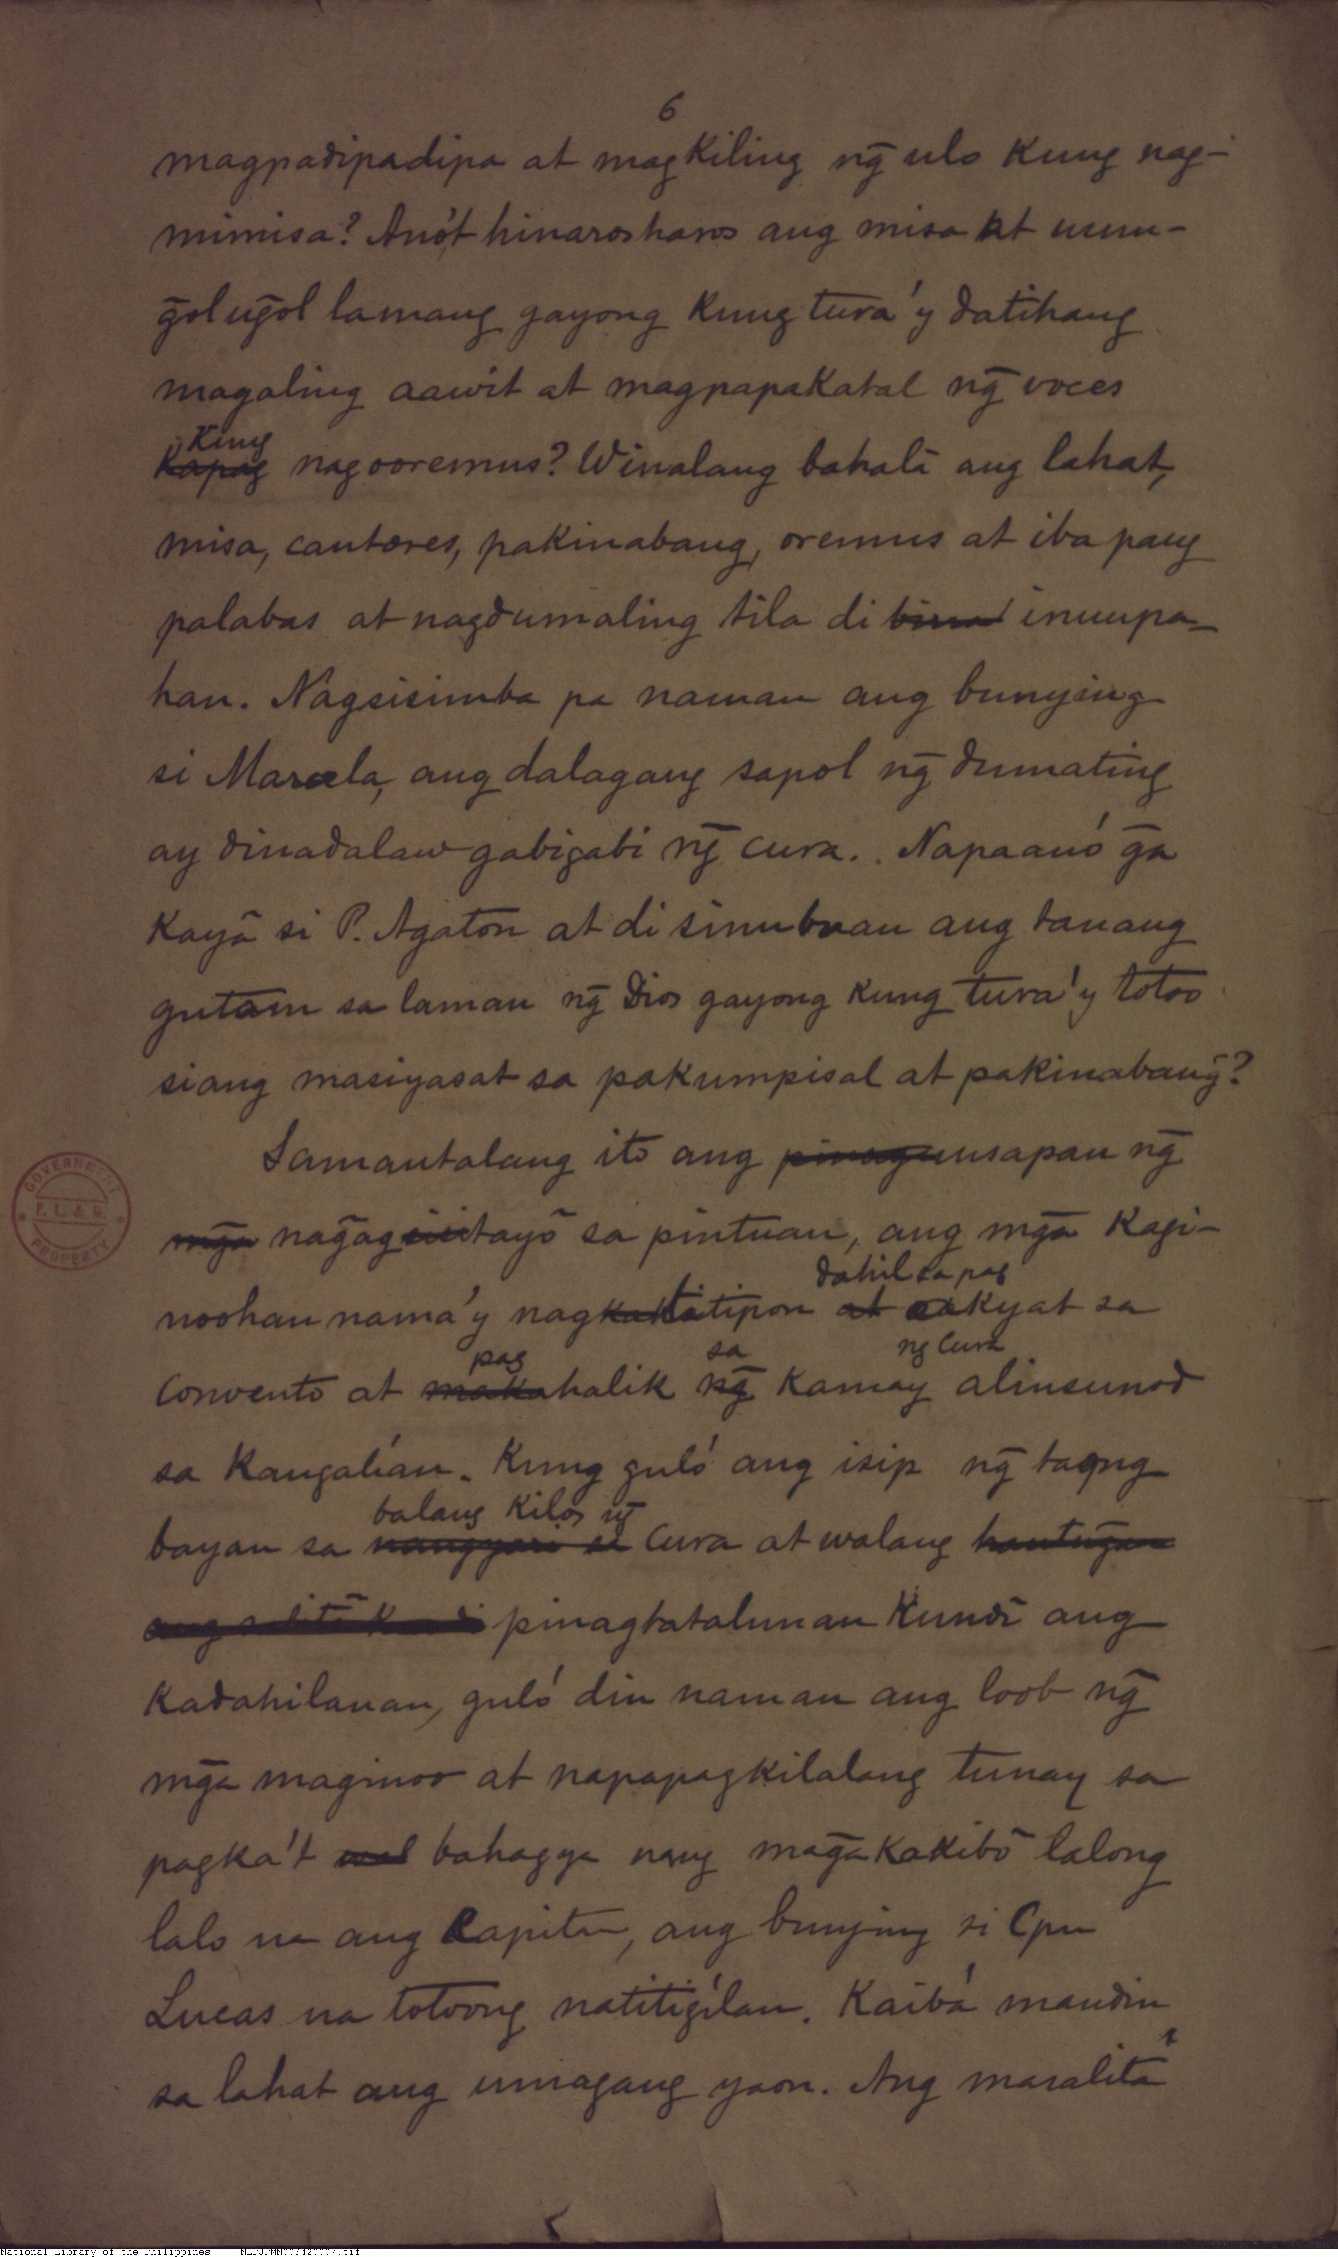 6
magpadipadipa at magkiling ng̃ ulo kung nag-
mimisa? Anó't hinarosharos ang misa at umu-
g̃olug̃ol lamang gayong kung tura'y datihang
magaling aawit at magpapakatal ng̃ voces
kung
kapag nagooremus? Winalang bahalà ang lahat,
misa, cantores, pakinabang, oremus at iba pang
palabas at nagdumaling tila di inuupa-
han. Nagsisimba pa naman ang bunying
si Marcela, ang dalagang sapol ng̃ dumating
ay dinadalaw gabigabi ng̃ cura.. Napaanó g̃a
kayâ si P. Agaton at di sinubuan ang tanang
gutom sa laman ng̃ Dios gayong kung tura'y totoo
siang masiyasat sa pakumpisal at pakinabang?
Samantalang itó ang pinaguusapan ng̃
mg̃a nag̃agsisitayô sa pintuan, ang mg̃a kagi-
dahil sa pag
noohan nama'y nagkakatitipon at aakyat sa
pag sa ng Cura
convento at makahalik ng̃ kamay alinsunod
sa kaugalian. Kung guló ang isip ng̃ taong
balang kilos ng̃
bayan sa nangyari si Cura at walang hantung̃an
ang salitâ kundi pinagtatalunan kundî ang
kadahilanan, guló din naman ang loob ng̃
mg̃a maginoo at napapagkilalang tunay sa
pagka't bahagya nang mag̃akakibô lalong
lalo na ang Capitan, ang bunying si Cpn
Lucas na totoong natitigílan. Kaibá mandin
sa lahat ang umagang yaon. Ang maralitâ
GOVERNMENT
P.L.&M.
PROPERTY
National Library of the Philippines